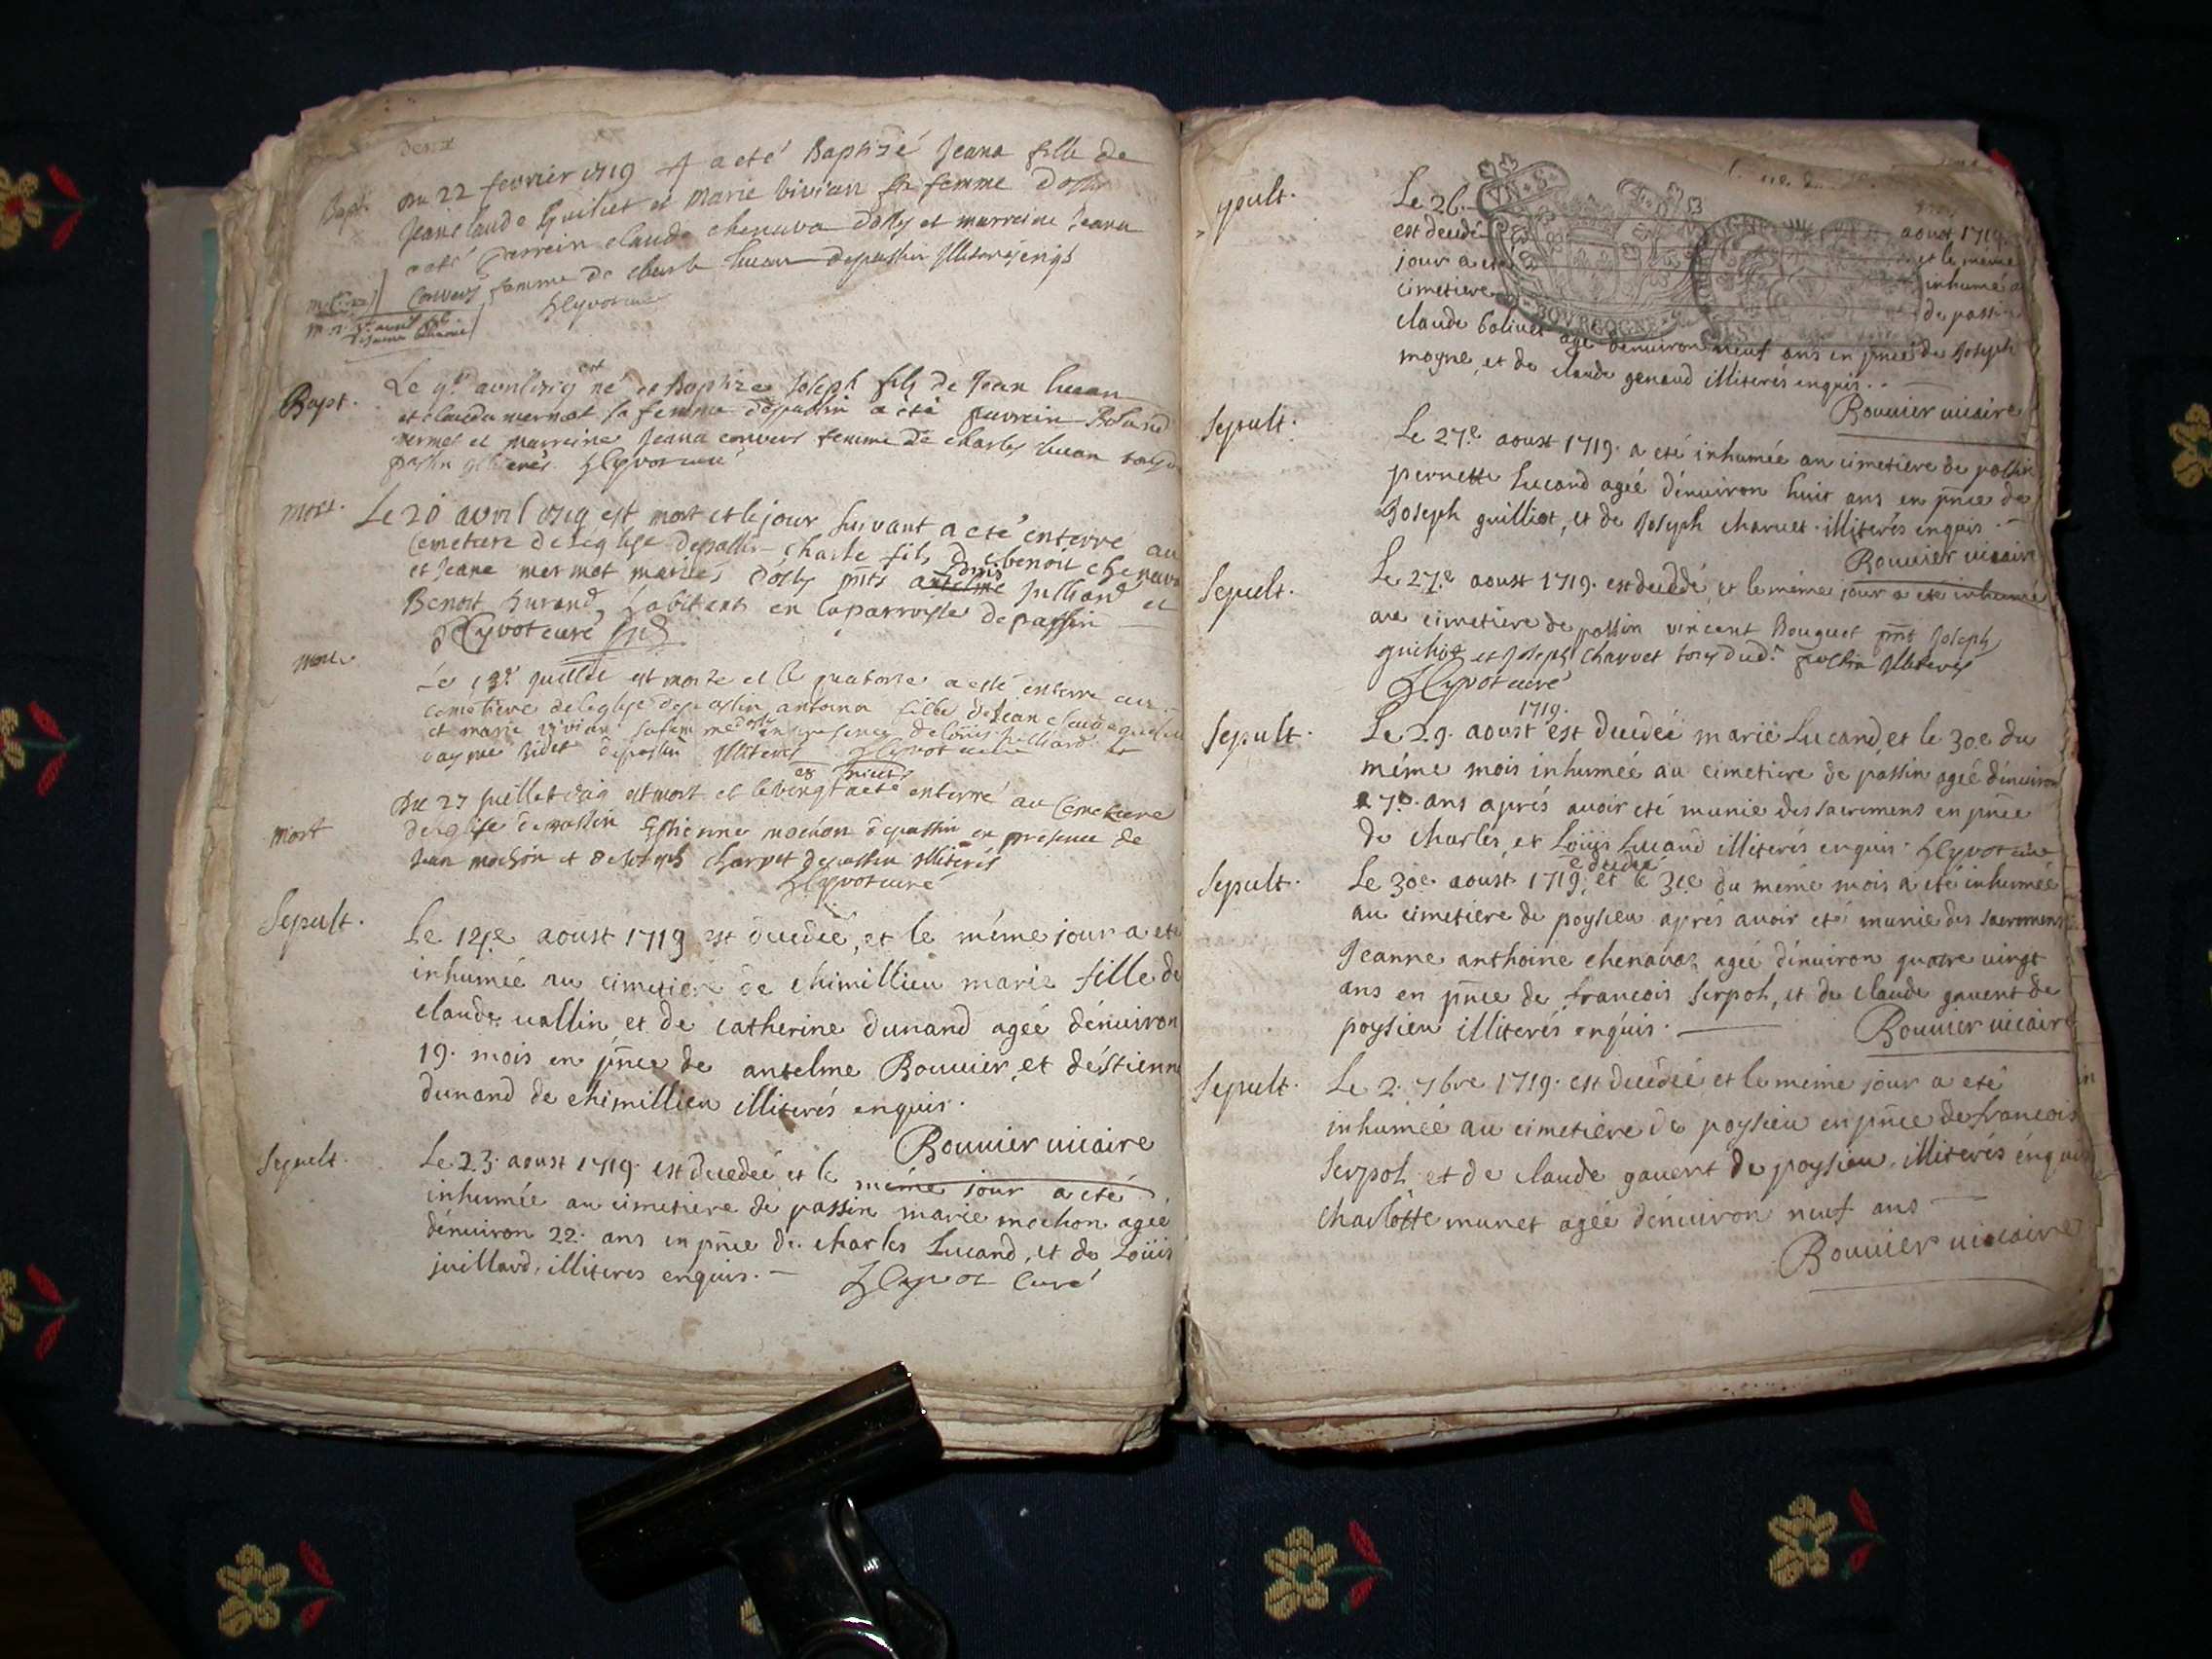 Bapt. Du 22 fevrier 1719 A a eté Baptisé Jeana fille de
Jeanclaude Guiliet et Marie vivian sa femme dosly
a eté perrein claude chenava dosly et marreine Jeana
convers femme de charle lucan depassin Illiterés enqis
Clyvot curé
Bapt. Le 9e avril 1719 est né et Baptize Joseph fils de Jean lucan
et clauda mermet sa femme depassin a eté parrein Roland
mermet et marreine Jeana convers femme de charles lucan
passin illiterés Clyvot curé
mort. Le 20 avril 1719 est mort et le jour suivant a eté enterré au
Cemetiere de leglise depassin charle fils de benoit chenava
et Jeane mermet mariés dosly pnts anselme Julliard et
Benoit Durand habitants en laparroisse depassin
Clyvot curé
mort Le 13e juillet est morte et le quatorse a esté enterré au
cemetiere deleglise depassin antoina fille de Jean claude
et marie vivian sa femme dosly en presence de Loüis Julliard et
depassin Illiterés Clyvot curé
Du 27 juillet 1719 est mort et le vingt huict a eté enterré au Cemetiere
mort deleglise depassin Estienne mochon depassin en presence de
Jean mochon et de Joseph charvet depassin illiterés
Clyvot curé
Sepult. Le 12e aoust 1719 est decedée, et le méme jour a eté
inhumée au cimetiere de chimillieu marie fille de
claude vallin et de catherine dunand ageé d'enuiron
19. mois en pnce de anselme Bouuier, et d'éstienne
dunand de chimillieu illiterés enquis.
Bouuier uicaire
Sepult. Le 23. aoust 1719. est decedeé et le méme jour a eté
inhumée au cimetiere de passin marie mochon ageé
dénuiron 22. ans en pnce de charles Lucand, et de Loüis
juillard, illiterés enquis. — Clyvot Curé
Sepult. Le 26. aoust 1719.
est decedé et le méme
jour a eté inhumé a
cimetiere de passin
claude Bolivet agé denuiron neuf ans en pnce de Joseph
mogne, et de claude genaud illiterés enquis. . —
Bouuier uicaire
Sepult. Le 27.e aoust 1719. a eté inhumée au cimetiere de passin
pernette Lucand ageé dénuiron huit ans en pnce de
Joseph guilliot, et de Joseph charuet. illiterés enquis. —
Bouuier uicaire
Sepult. Le 27.e aoust 1719. est decedé, et le méme jour a eté inhumé
au cimetiere de passin vincent Bouguet pnts Joseph
guilliot et Joseph Charvet tous dud.t passin Illiterés
Clyvot curé
1719.
Sepult. Le 29. aoust est decedeé marie Lucand, et le 30e du
méme mois inhumeé au cimetiere de passin ageé dénuiron
70. ans aprés auoir eté munie des sacremens en pnce
de charles, et Loüis Lucand illiterés enquis. Clyvot curé
e decedeé
Sepult. Le 30e aoust 1719, et le 31e du méme mois a eté inhumeé
au cimetiere de poysieu aprés auoir eté munie des sacremens
Jeanne anthoine chenavaz ageé dénuiron quatre uingt
ans en pnce de francois Serpol, et de claude gauent de
poysieu illiterés enquis. — Bouuier uicaire
Sepult. Le 2. 7bre 1719. est decedeé et le méme jour a eté
inhumeé au cimetiere de poysieu en pnce de francois
Serpol et de claude gauent de poysieu, illiterés énquis
charlotte munet ageé dénuiron neuf ans —
Bouuier uicaire
BOURGOGNE